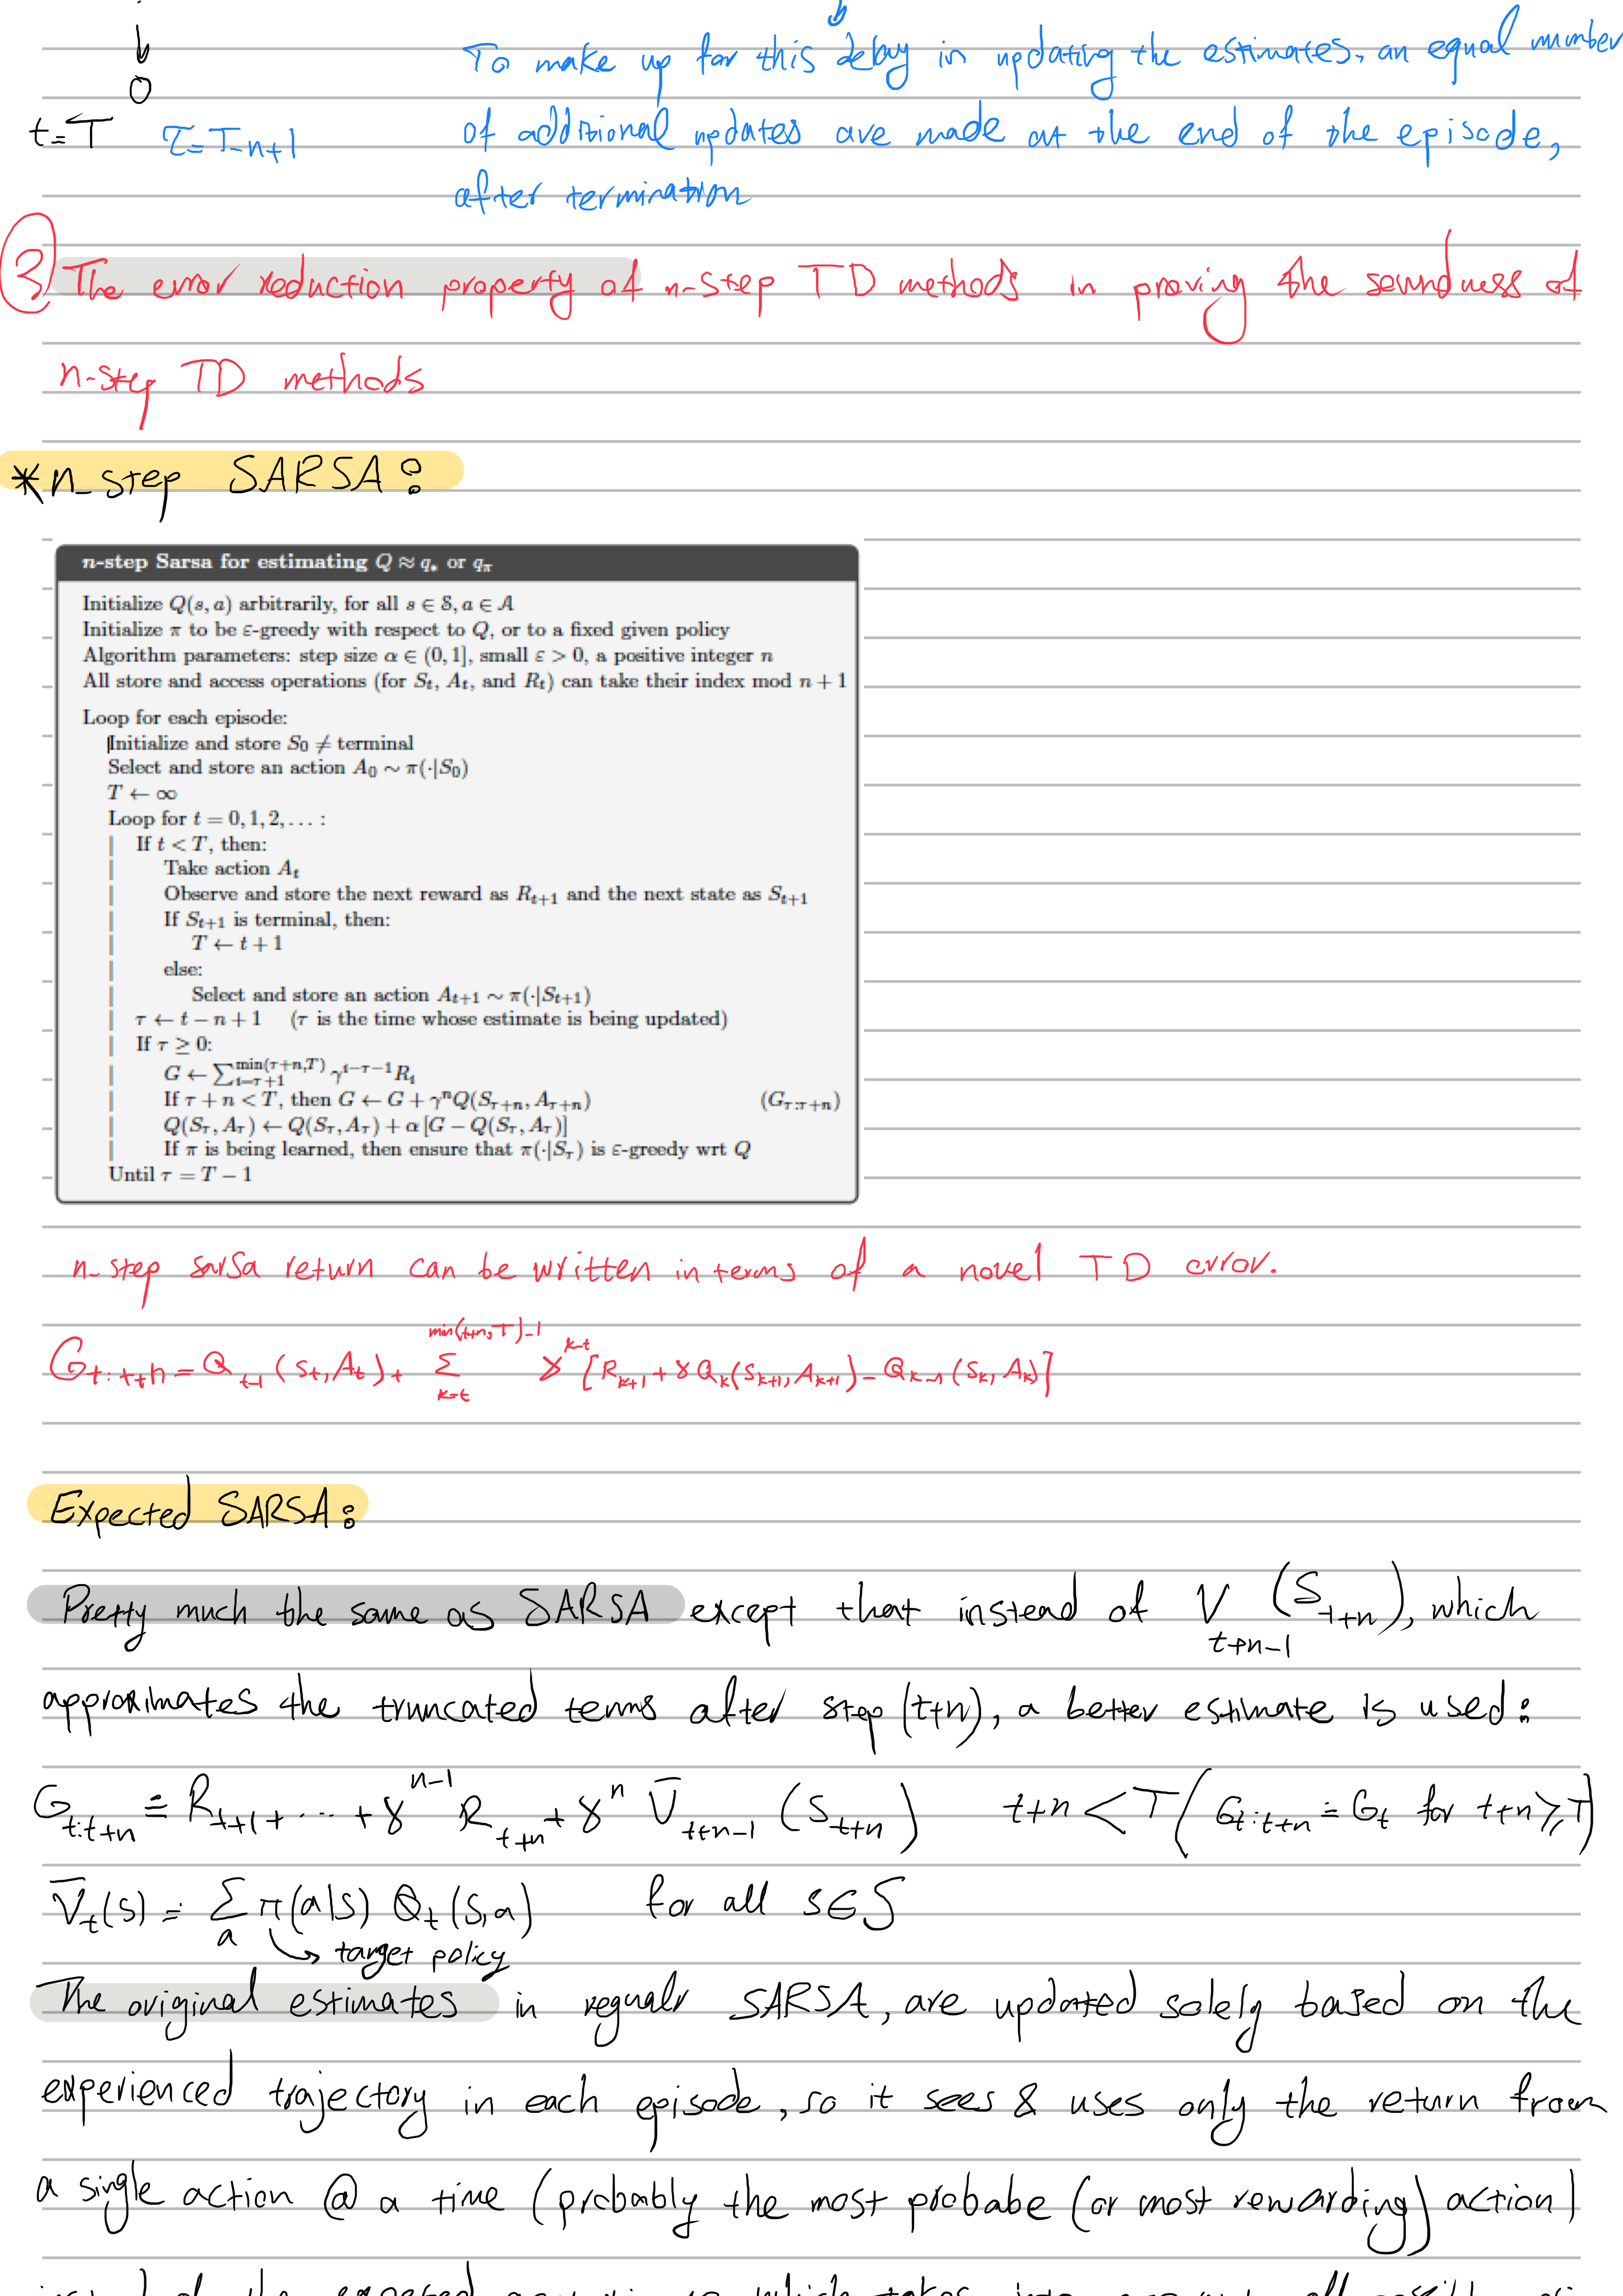 To make up for this delay in updating the estimates, an equal number
t=T τ=T-n+1 of additional updates are made at the end of the episode,
after termination
3 The error reduction property of n-step TD methods in proving the soundness of
n-step TD methods
*n-step SARSA:
n-step Sarsa for estimating Q ≈ q* or qπ
Initialize Q(s, a) arbitrarily, for all s ∈ S, a ∈ A
Initialize π to be ε-greedy with respect to Q, or to a fixed given policy
Algorithm parameters: step size α ∈ (0, 1], small ε > 0, a positive integer n
All store and access operations (for St, At, and Rt) can take their index mod n + 1
Loop for each episode:
Initialize and store S0 ≠ terminal
Select and store an action A0 ∼ π(·|S0)
T ← ∞
Loop for t = 0, 1, 2, . . . :
| If t < T, then:
| Take action At
| Observe and store the next reward as Rt+1 and the next state as St+1
| If St+1 is terminal, then:
| T ← t + 1
| else:
| Select and store an action At+1 ∼ π(·|St+1)
| τ ← t − n + 1 (τ is the time whose estimate is being updated)
| If τ ≥ 0:
| G ← ∑_{i=τ+1}^{min(τ+n,T)} γ^{i−τ−1} Ri
| If τ + n < T, then G ← G + γ^n Q(Sτ+n, Aτ+n) (Gτ:τ+n)
| Q(Sτ, Aτ) ← Q(Sτ, Aτ) + α [G − Q(Sτ, Aτ)]
| If π is being learned, then ensure that π(·|Sτ) is ε-greedy wrt Q
Until τ = T − 1
n-step sarsa return can be written in terms of a novel TD error.
G_{t:t+n} = Q_{t-1}(St, At) + ∑_{k=t}^{min(t+n,T)-1} γ^{k-t} [R_{k+1} + γQ_k(S_{k+1}, A_{k+1}) - Q_{k-1}(S_k, A_k)]
Expected SARSA:
Pretty much the same as SARSA except that instead of V_{t+n-1}(S_{t+n}), which
approximates the truncated terms after step (t+n), a better estimate is used:
G_{t:t+n} = R_{t+1} + ... + γ^{n-1} R_{t+n} + γ^n V̄_{t+n-1}(S_{t+n}) t+n < T (G_{t:t+n} = G_t for t+n ≥ T)
V̄_t(s) = ∑_a π(a|s) Q_t(s,a) for all s∈S
target policy
The original estimates in regualr SARSA, are updated solely based on the
experienced trajectory in each episode, so it sees & uses only the return from
a single action @ a time (probably the most probabe (or most rewarding) action)